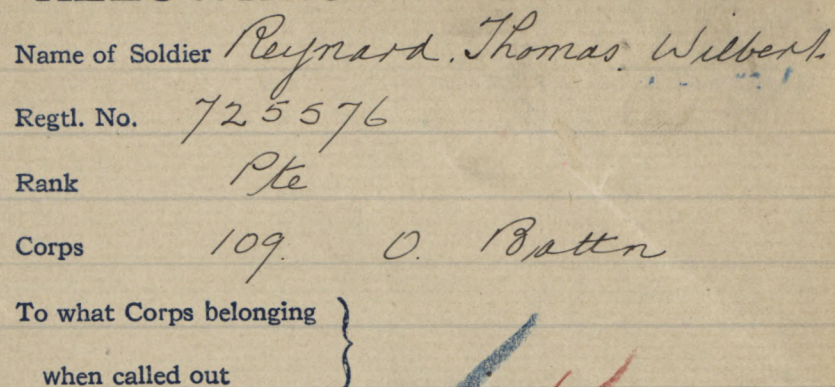 Name of Soldier Reynard. Thomas. Wilbert.
Regtl. No. 725576
Rank Pte
Corps 109. O. Battn
To what Corps belonging
when called out